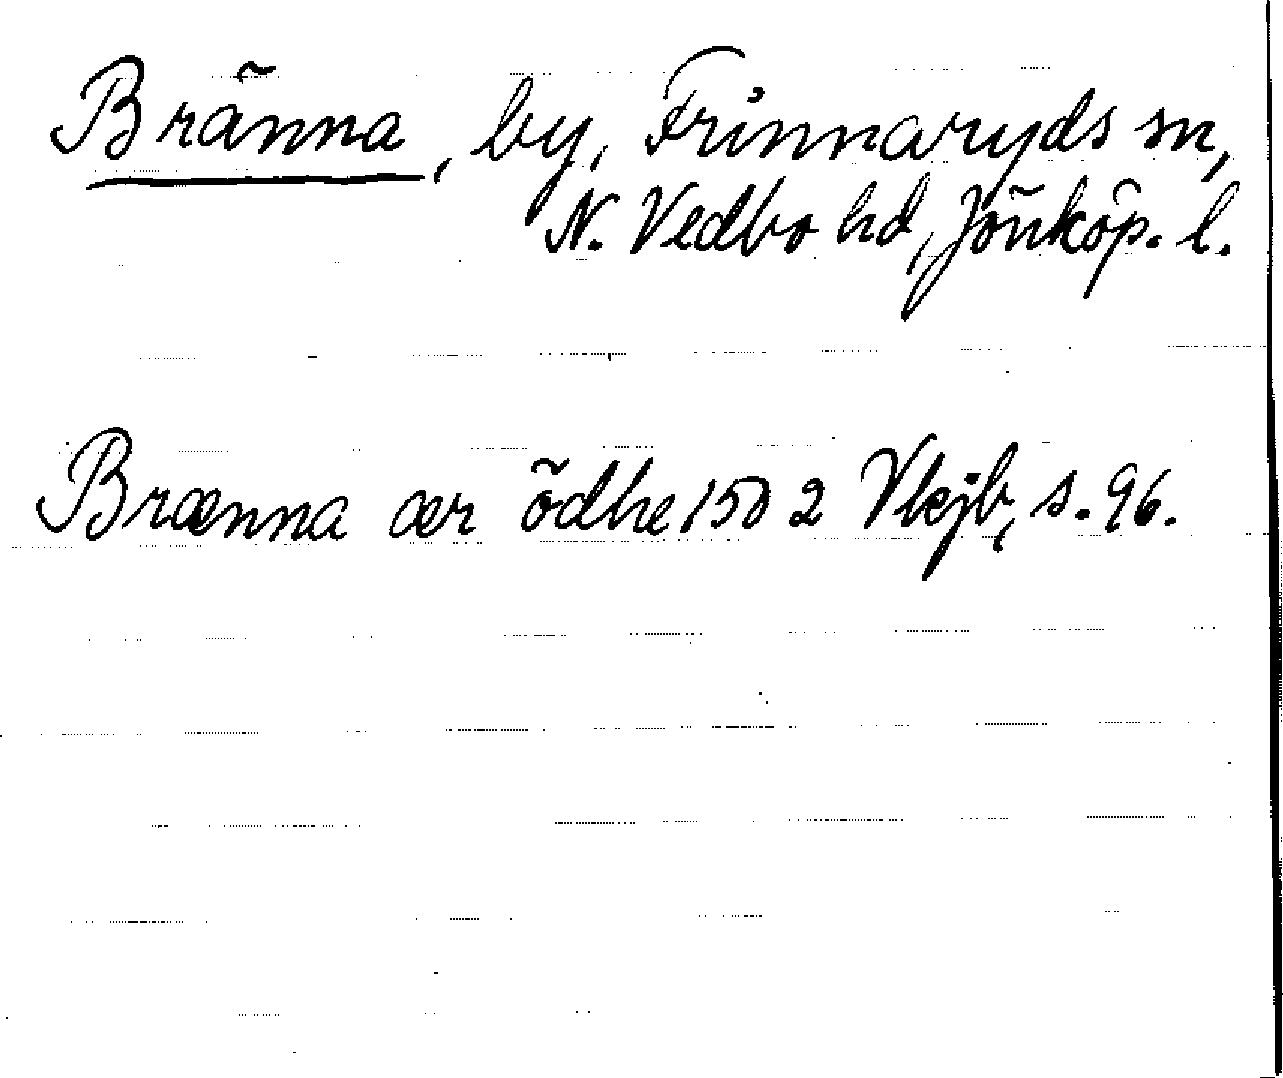 Bränna, by, Frinnaryds sn,
N. Vedbo hd, Jönköp. l.
Brænna ær ödhe 1502 Vlejb, s. 96.